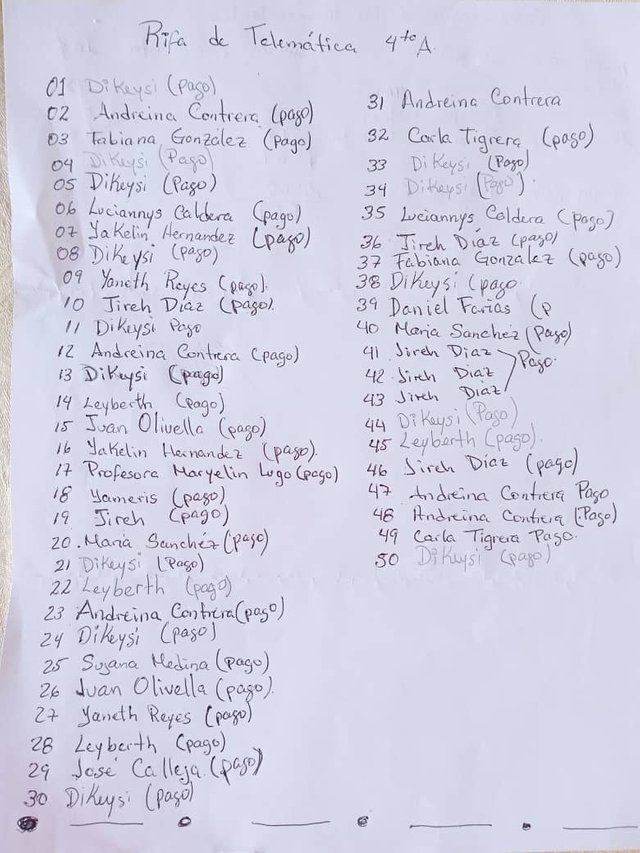 Rifa de Telemática 4to A.
01 Dikeysi (pago)
02 Andreina Contrera (pago)
03 Fabiana González (pago)
04 Dikeysi (Pago)
05 Dikeysi (Pago)
06 Luciannys Caldera (pago)
07 Yakelin Hernandez (pago)
08 Dikeysi (pago)
09 Yaneth Reyes (pago).
10 Jireh Díaz (pago).
11 Dikeysi Pago
12 Andreina Contrera (pago)
13 Dikeysi (pago)
14 Leyberth (pago)
15 Juan Olivella (pago)
16 Yakelin Hernandez (pago).
17 Profesora Maryelin Lugo (pago)
18 Yameris (pago)
19 Jireh (pago)
20. Maria Sanchéz (pago)
21 Dikeysi (Pago)
22 Leyberth (pago)
23 Andreina Contrera (pago)
24 Dikeysi (pago)
25 Susana Medina (pago)
26 Juan Olivella (pago).
27 Yaneth Reyes (pago)
28 Leyberth (pago)
29 José Calleja. (pago)
30 Dikeysi (pago)
31 Andreina Contrera
32 Carla Tigrera (pago)
33 Dikeysi (Pago)
34 Dikeysi (Pago).
35 Luciannys Caldera (pago)
36 Jireh Díaz (pago)
37 Fabiana González (pago)
38 Dikeysi (pago.
39 Daniel Farias (p
40 Maria Sanchéz (Pago)
41 Jireh Diaz
42 Jireh Diaz Pago.
43 Jireh Diaz
44 Dikeysi (Pago)
45 Leyberth (pago).
46 Jireh Díaz (pago)
47 Andreina Contrera Pago
48 Andreina Contrera (Pago)
49 Carla Tigrera Pago.
50 Dikeysi (pago)